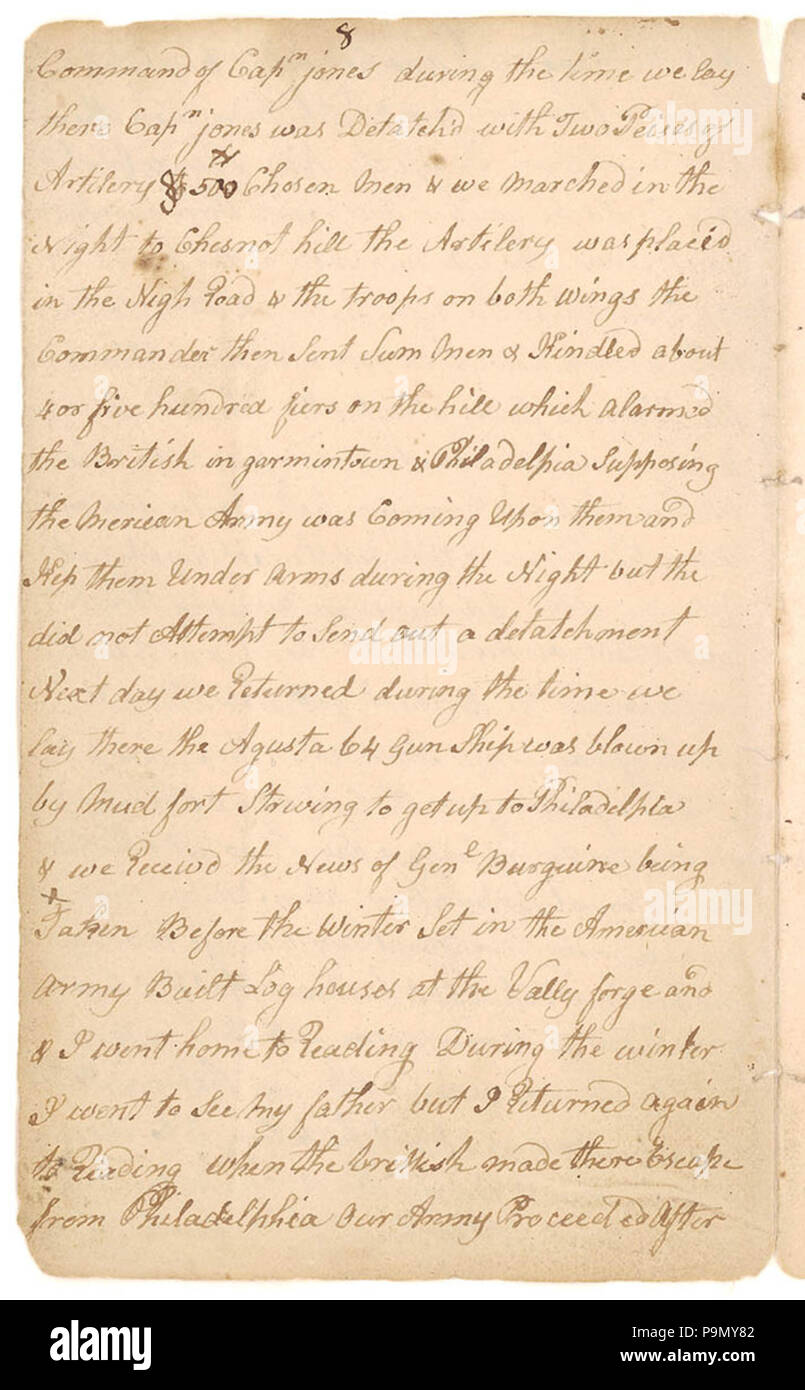 8
Command of Capn jones during the time we lay
there Capn jones was Detatch'd with Two Peices of
Artilery & 500 Chosen Men & we Marched in the
Night to Chesnot hill the Artilery was placed
in the High Road & the troops on both Wings the
Commander then Sent Sum Men & Kindled about
4 or five hundred fiers on the hill which alarmed
the British in garmintown & Philadelpia Supposing
the Merican Army was Coming Upon them and
Kep them Under Arms during the Night but the
did not Attempt to Send out a detatchment
Next day we Returned during the time we
lay there the Agusta 64 Gun Ship was blown up
by Mud fort Striving to get up to Philadelpia
& we Receivd the News of Genl Burguine being
Taken Before the Winter Set in the American
Army Built Log houses at the Vally forge and
& I went home to Reading During the winter
I went to See My father but I Returned again
to Reading when the brittish made there Escape
from Philadelphia Our Army Proceeded After
a
alamy
alamy
Image ID: P9MY82
www.alamy.com